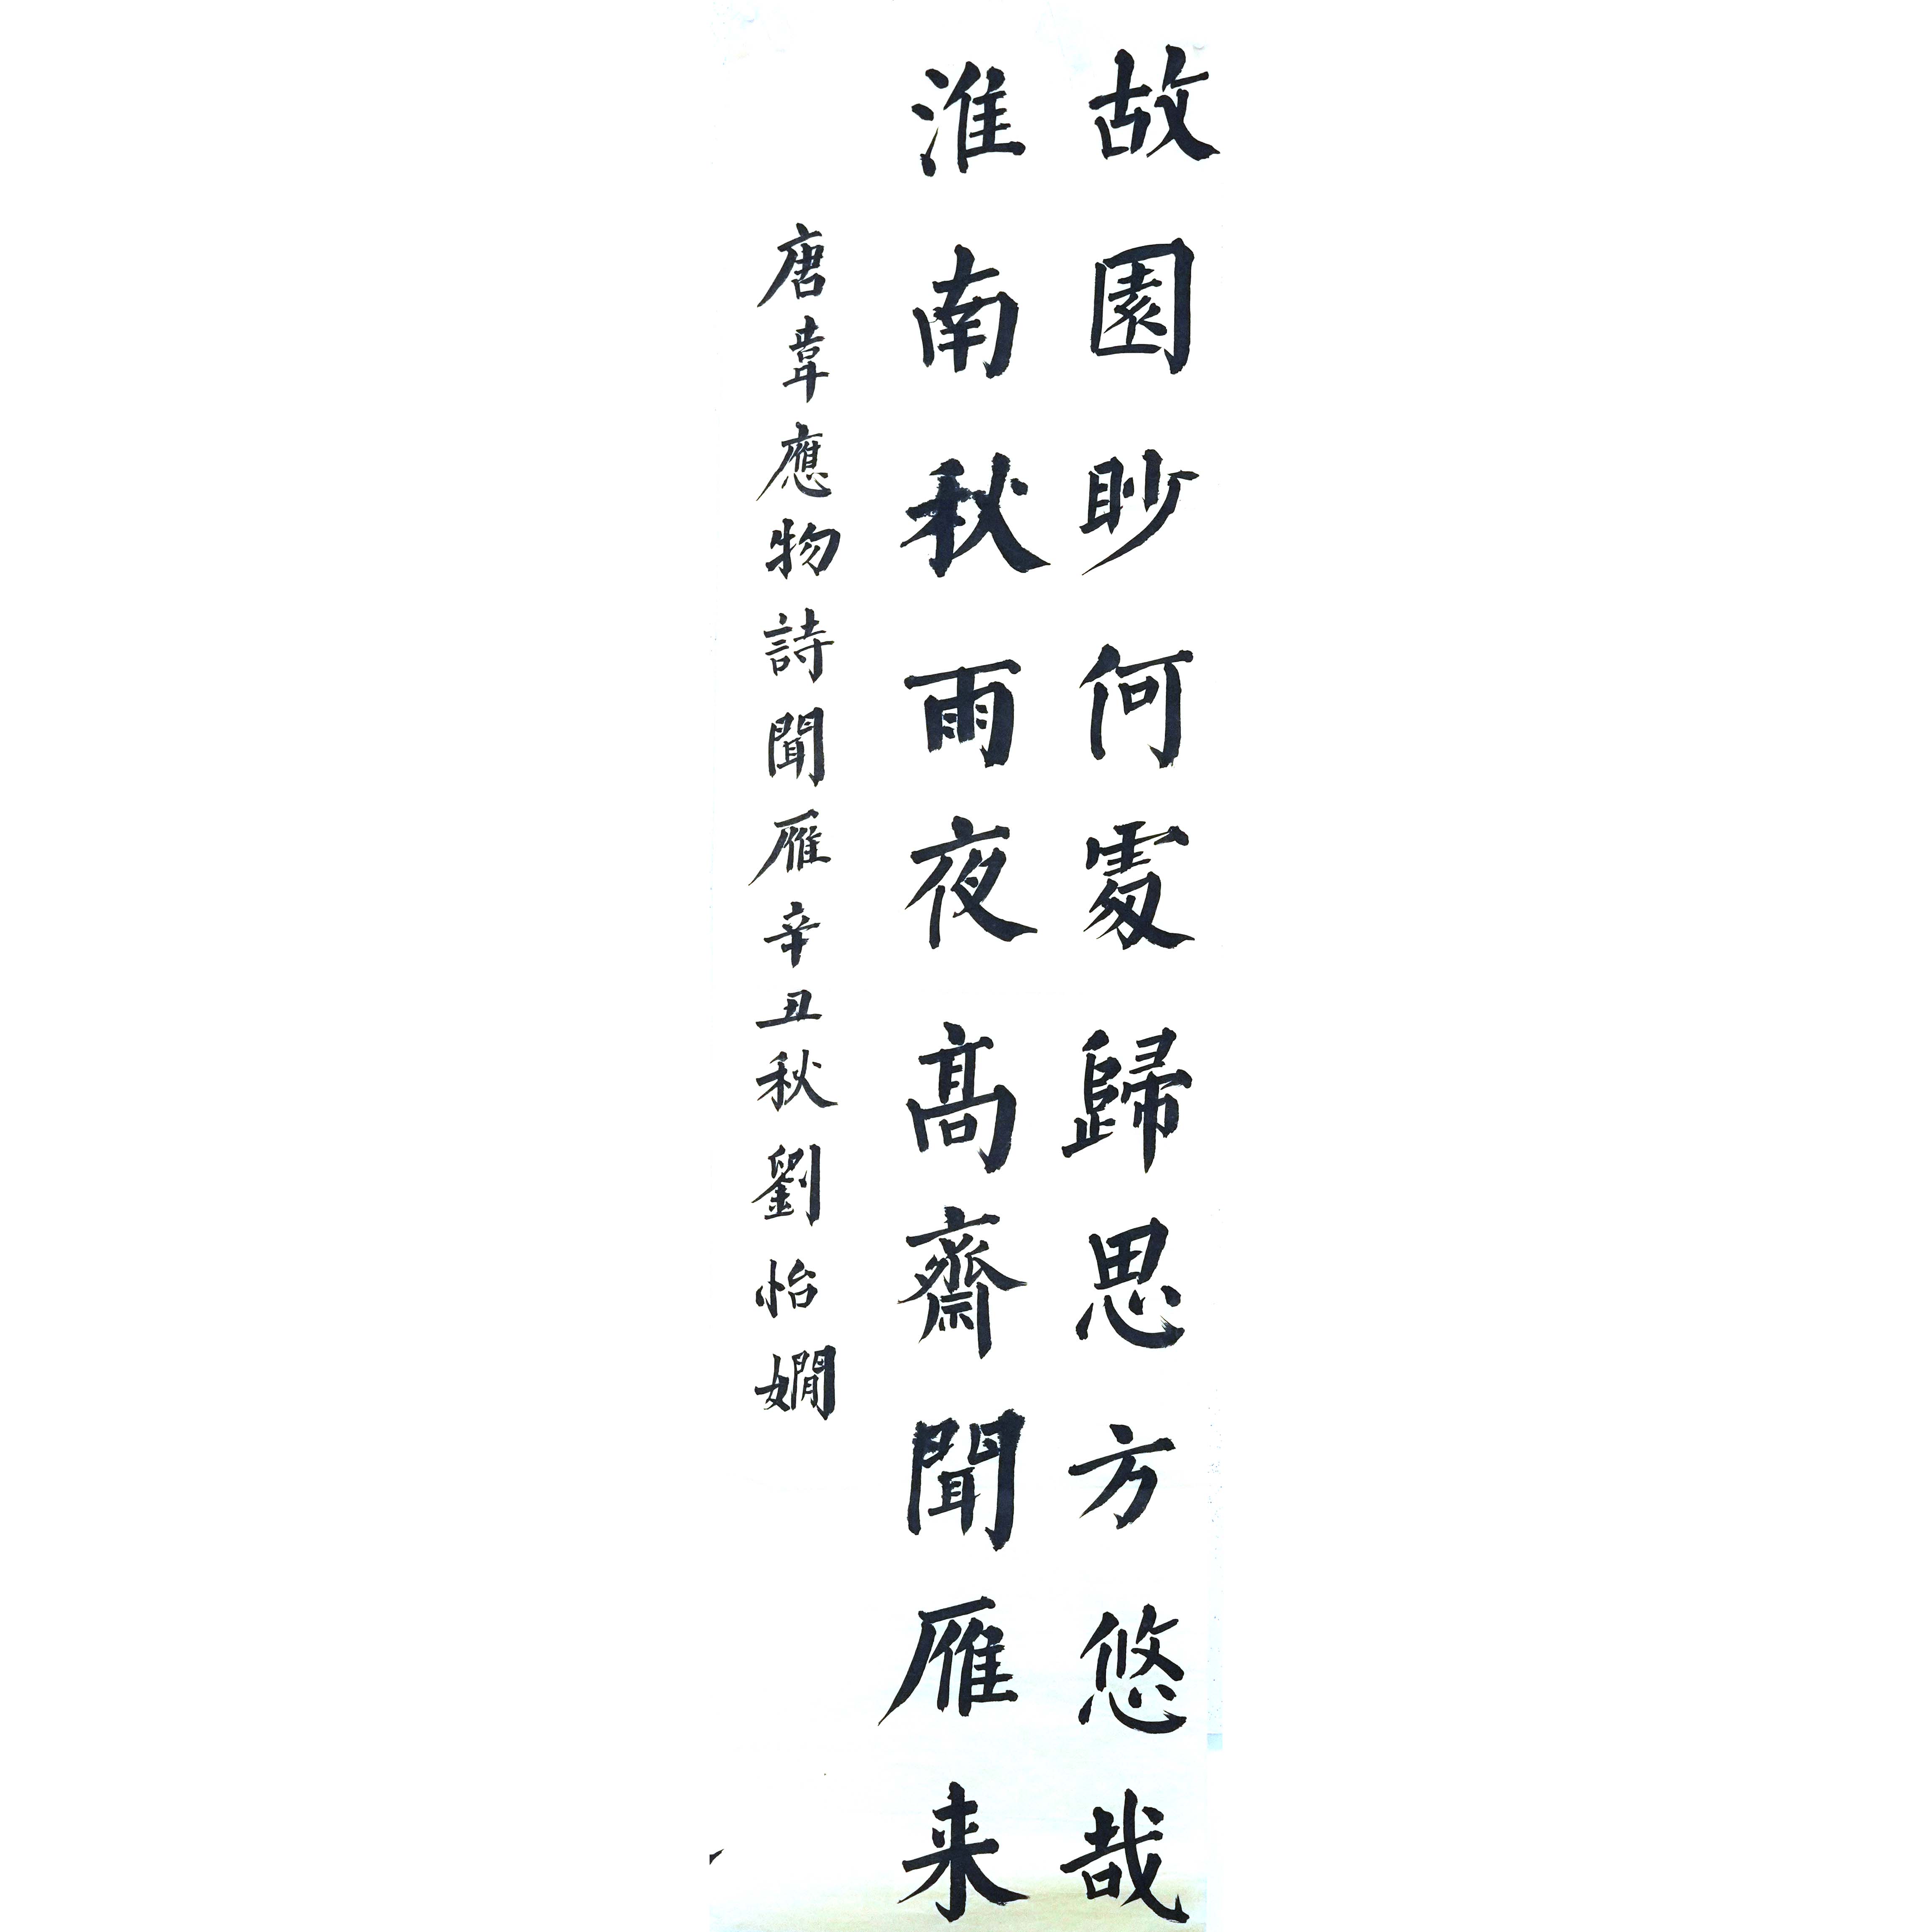 故園眇何處歸思方悠哉
淮南秋雨夜高齋聞雁来
唐韋應物詩聞雁辛丑秋劉怡嫺